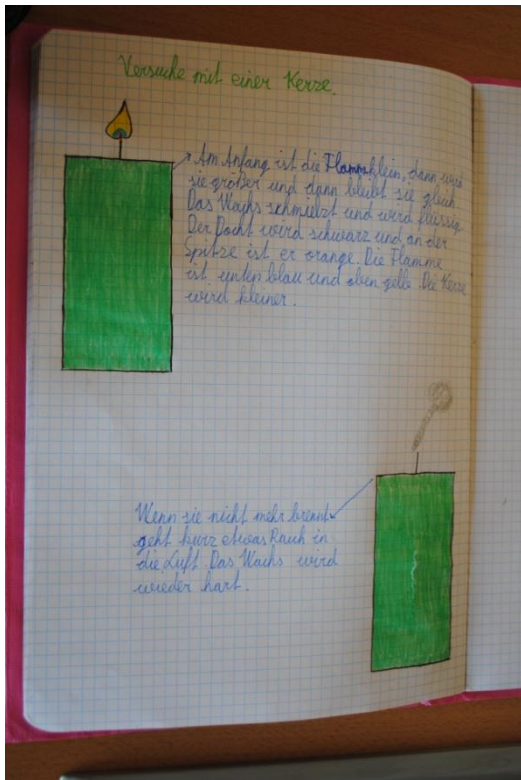 Versuche mit einer Kerze.
Am Anfang ist die Flamme klein, dann wird
sie größer und dann bleibt sie gleich.
Das Wachs schmelzt und wird flüssig.
Der Docht wird schwarz und an der
Spitze ist er orange. Die Flamme
ist unten blau und oben gelb. Die Kerze
wird kleiner.
Wenn sie nicht mehr brennt
geht kurz etwas Rauch in
die Luft. Das Wachs wird
wieder hart.